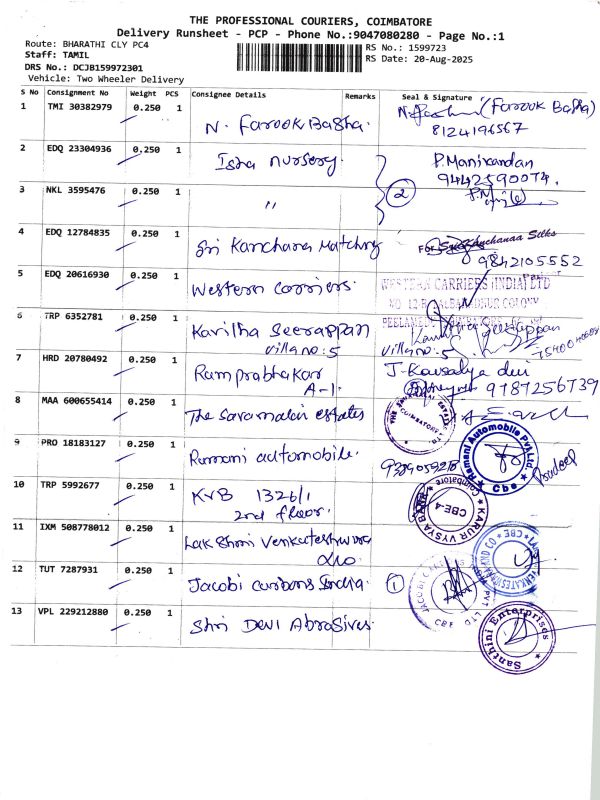 THE PROFESSIONAL COURIERS, COIMBATORE
Delivery Runsheet - PCP - Phone No.:9047080280 - Page No.:1
Route: BHARATHI CLY PC4
RS No.: 1599723
Staff: TAMIL
RS Date: 20-Aug-2025
DRS No.: DCJB159972301
Vehicle: Two Wheeler Delivery
S No Consignment No Weight PCS Consignee Details Remarks Seal & Signature
1 TMI 30382979 0.250 1 N. Farook Basha. (Farook Basha)
8124196567
2 EDQ 23304936 0.250 1 Isha nursery. P. Manikandan
9442590074.
3 NKL 3595476 0.250 1 " 2
4 EDQ 12784835 0.250 1 Sri Kanchana Matching For Sri Kanchanaa Silks
9842105552
5 EDQ 20616930 0.250 1 Western carriers. WESTERN CARRIERS (INDIA) LTD
6 TRP 6352781 0.250 1 Kavitha Seerappan
Villa no: 5 Villa no: 5
7 HRD 20780492 0.250 1 Ramprabhakar J. Kousalya devi
A-1. 9787256739
8 MAA 600655414 0.250 1 The Savamalai estates COIMBATORE
9 PRO 18183127 0.250 1 Ramani automobile. Ramani Automobile Pvt. Ltd. Cbe Pradeep
10 TRP 5992677 0.250 1 KVB 1326/1 KARUR VYSYA BANK Coimbatore CBE-4
2nd floor.
11 IXM 508778012 0.250 1 Lakshmi Venkateshwara CBE
12 TUT 7287931 0.250 1 Jacobi carbons India. 1 CBE
13 VPL 229212880 0.250 1 Shri Devi Abrasives. Santhini Enterprises